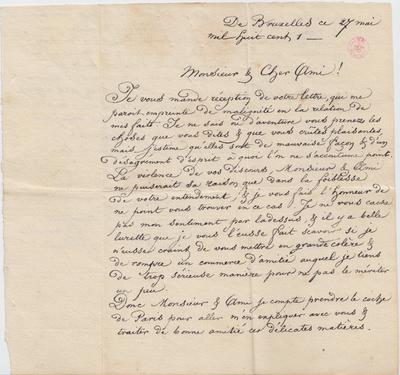 De Bruxelles ce 27 mai
mil huit cent 1 —
Monsieur & Cher Ami !
Je vous mande réception de votre lettre, que me
paroit empreinte de malignité en la relation de
mes faits. Je ne sais ni d'aventure vous prenez les
choses que vous dites & que vous croïtes plaisantes,
mais j'estime qu'elles sont de mauvaise façon & d'un
désagrément d'esprit à quoi l'on ne s'accoutume point.
La violence de vos discours, Monsieur & Ami
ne puiserait sa raison que dans la foiblesse
de votre entendement, & je vous fais l'honneur de
ne point vous trouver en ce cas. Je ne vous cache
pas mon sentiment par ladessus, & il y a belle
lurette que je vous l'eusse fait scavoir se je
n'eusse craint de vous mettre en grande colère &
de rompre un commerce d'amitié auquel je tiens
de trop sérieuse manière pour ne pas le mériter
un peu.
Donc Monsieur & Ami je compte prendre le coche
de Paris pour aller m'en expliquer avec vous &
traiter de bonne amitié ces délicates matières.